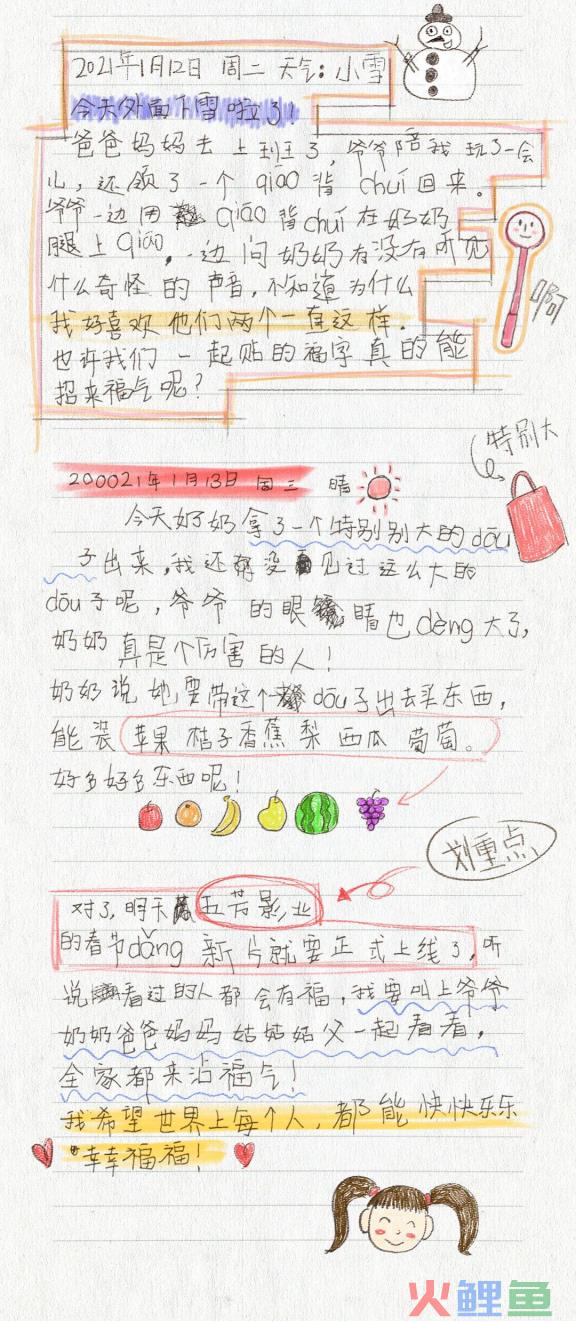 2021年1月12日 周二 天气：小雪
今天外面下雪啦了！
爸爸妈妈去上班了，爷爷陪我玩了一会
儿，还领了一个qiāo背chuí回来。
爷爷一边用qiāo背chuí在奶奶
腿上qiāo，一边问奶奶有没有听见
什么奇怪的声音，不知道为什么
啊
我好喜欢他们两个一直这样．
也许我们一起贴的福字真的能
招来福气呢？
特别大
200021年1月13日 周三 晴
今天奶奶拿了一个特别别大的dōu
子出来，我还没见过这么大的
dōu子呢，爷爷的眼睛也dèng大了，
奶奶真是个厉害的人！
奶奶说她要带这个dōu子出去买东西，
能装苹果 桔子香蕉 梨 西瓜 葡萄。
好多好多东西呢！
划重点
对了，明天五芳影业
的春节dǎng新片就要正式上线了，听
说看过的人都会有福，我要叫上爷爷
奶奶爸爸妈妈姑姑姑父一起看看，
全家都来沾福气！
我希望世界上每个人，都能快快乐乐
幸幸福福！
火鲤鱼